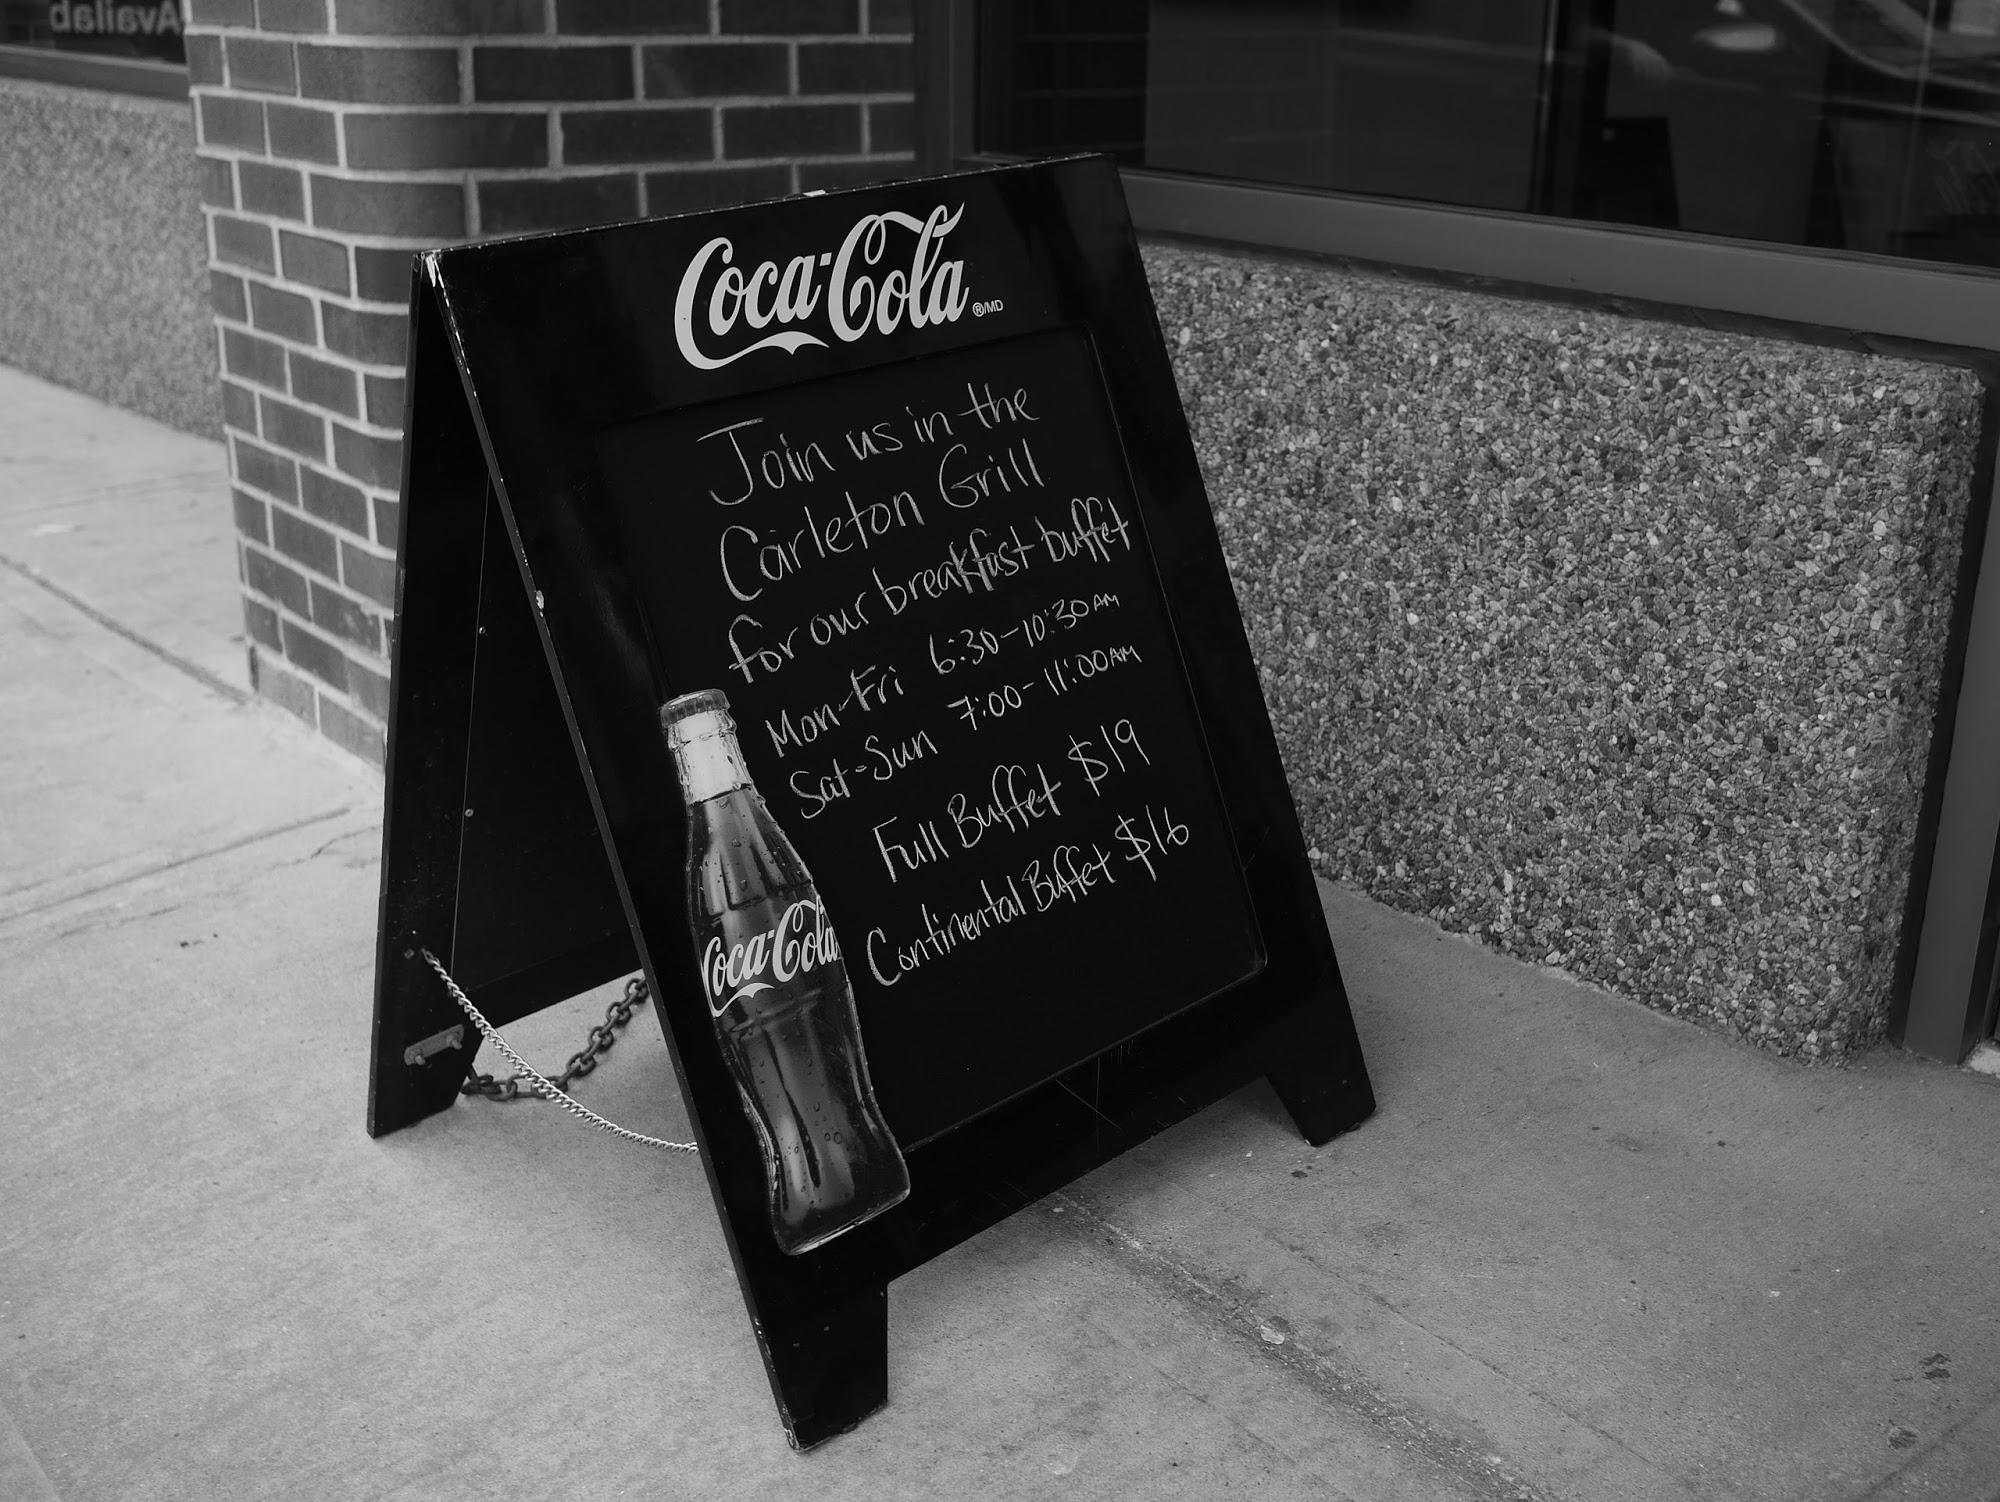 Availab
Coca-Cola ®/MD
Join us in the
Carleton Grill
for our breakfast buffet
Mon-Fri 6:30-10:30AM
Sat-Sun 7:00-11:00AM
Full Buffet $19
Continental Buffet $16
Coca-Cola